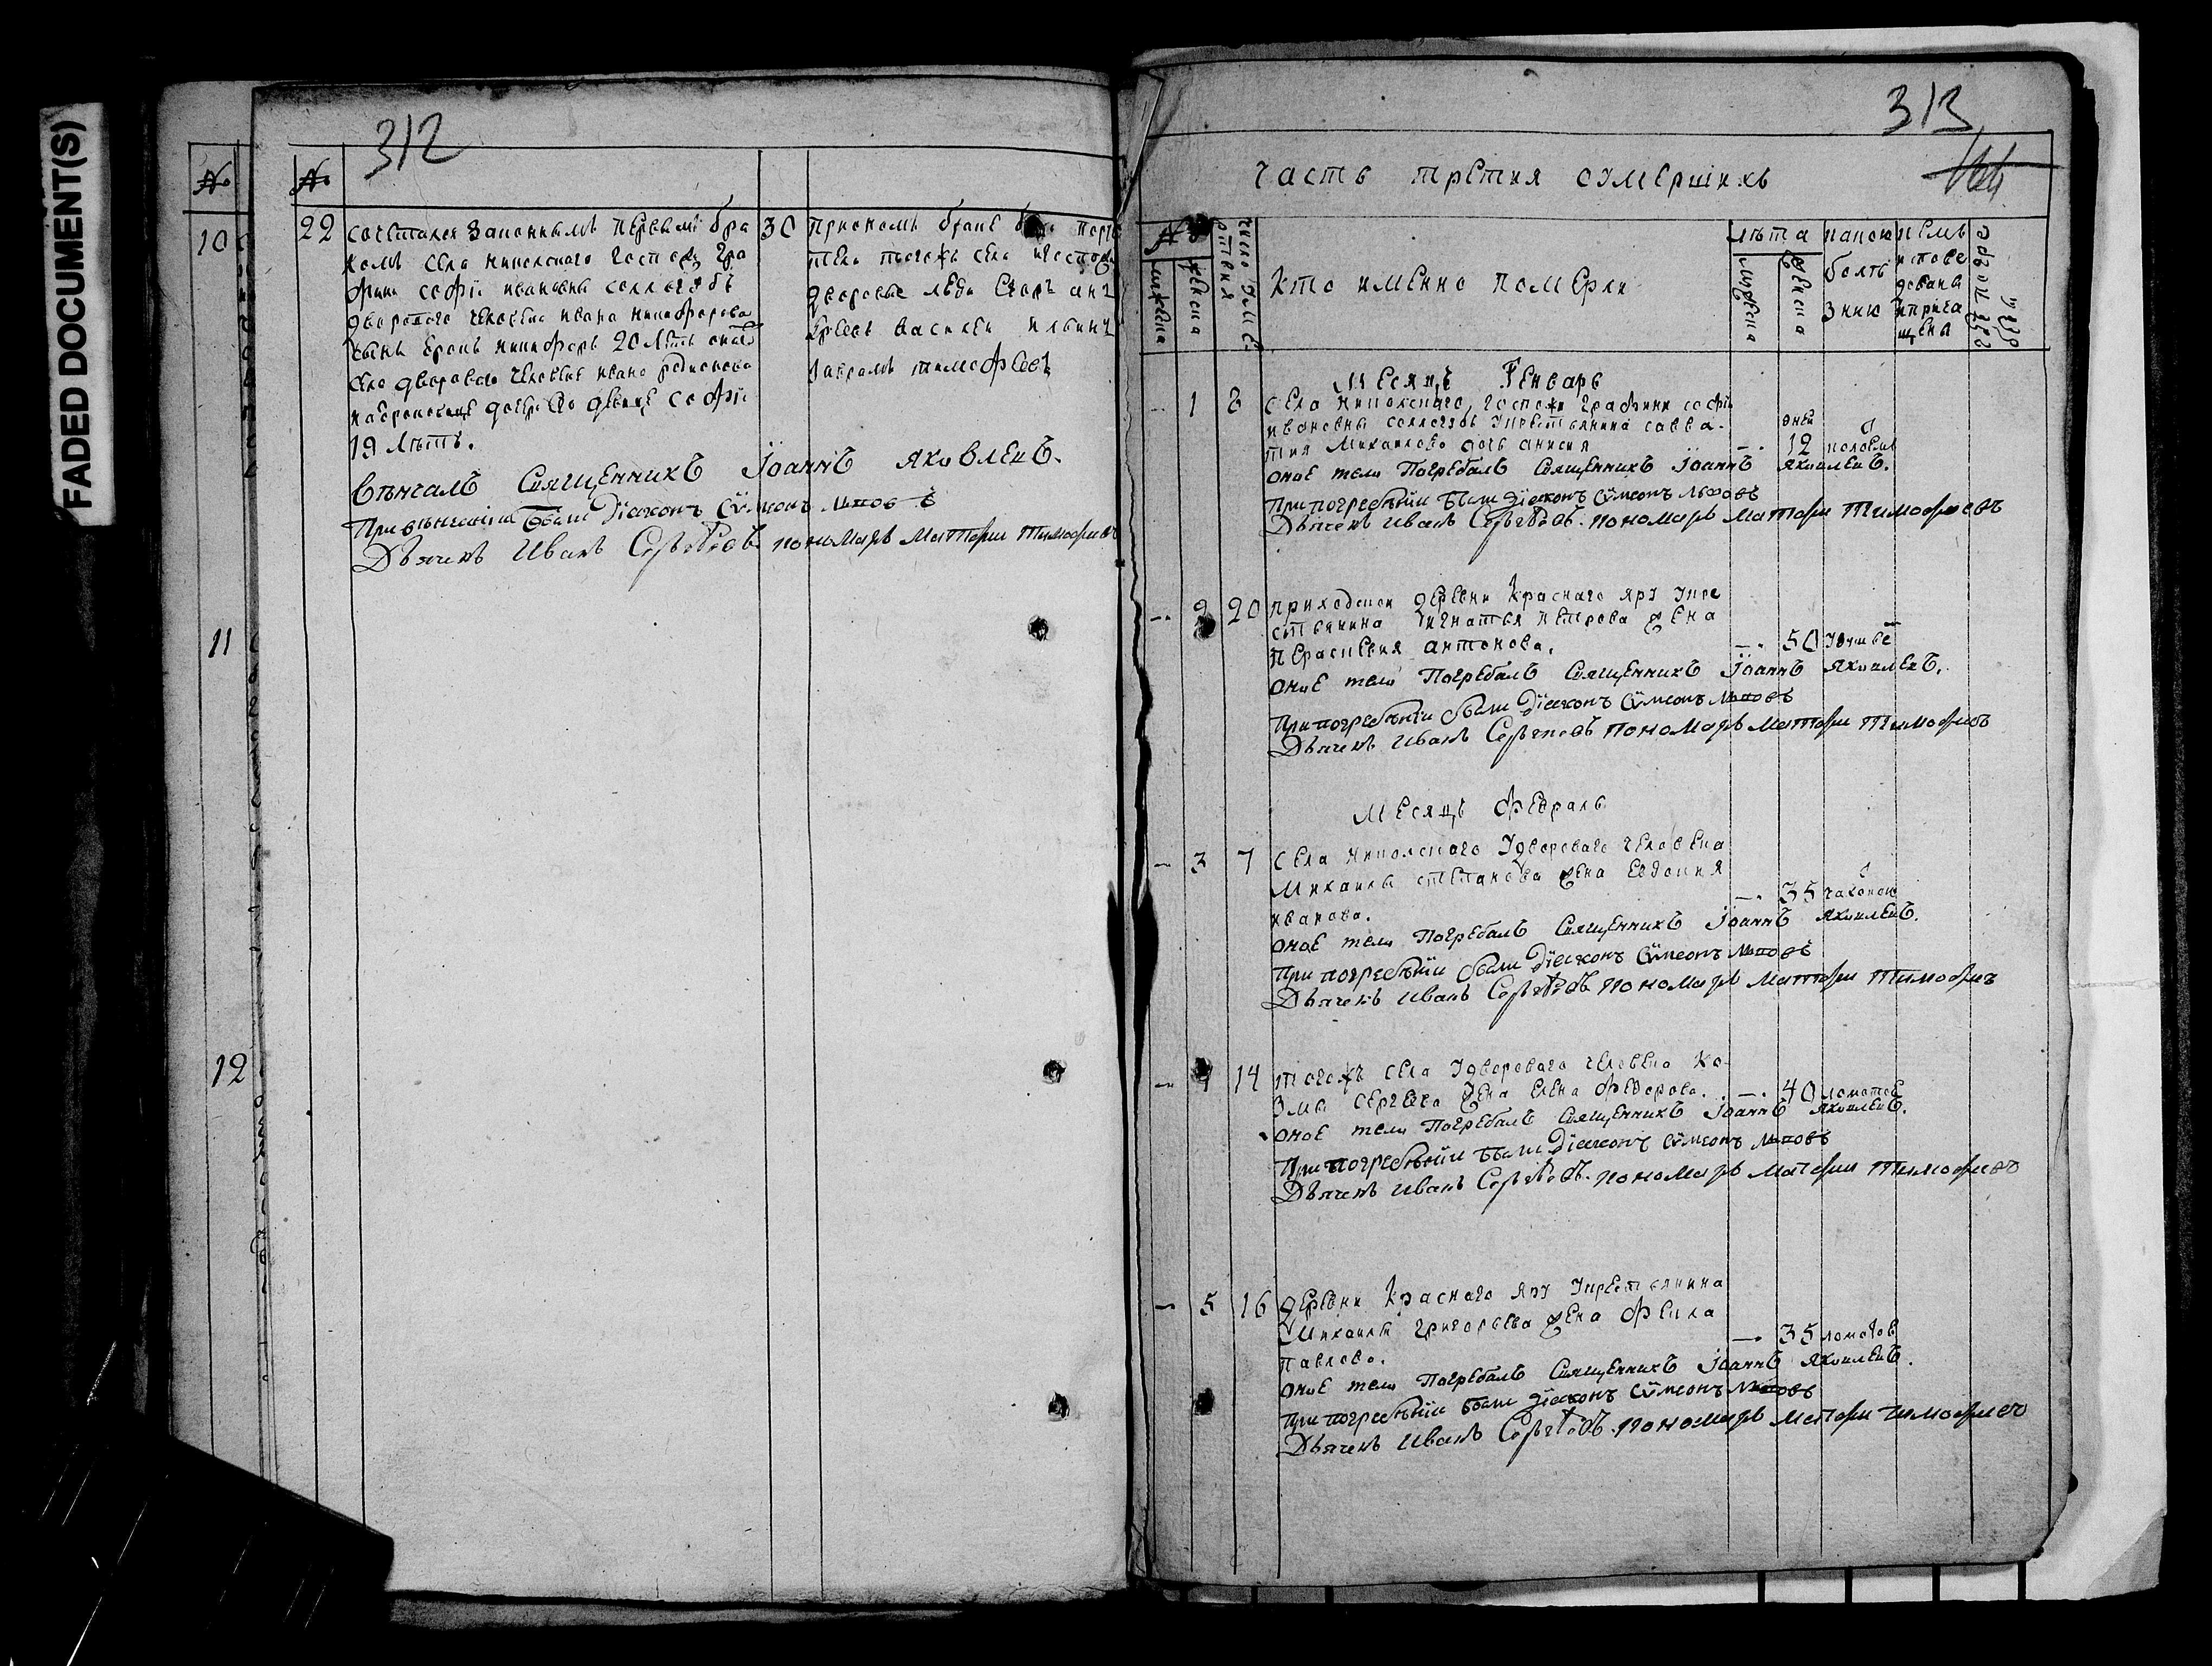 FADED DOCUMENT(S)
312
№
№
10
11
12
22
30
сочетался законнымъ первымъ бра
комъ села никольскаго госпожи гра
фини софїи ивановны соллогубъ
двороваго человека ивана никифорова
сынъ
никифоръ 20 летъ
села двороваго человека ивана родионова
дочерью девицею софїи
19 летъ.
приономъ браке
тели тогожъ села
дворовые люди Егоръ
василеи ильинъ
тимофеевъ
Венчалъ Священникъ Іоаннъ Яковлевъ.
При венчанїи были Дїаконъ Сѵмеонъ
Дьячекъ Иванъ Сергѣевъ. пономарь Матѳеи Тимофеевъ
313
часть третия оумершихъ
№
мужеска
женска
число
кто именно померли
лѣта
мужеска
женска
какою
болѣ
знию
кемъ
испове
дованы
и прича
щены
где погре
бены
Месяцъ Генварь
1 8 села никольскаго, госпожи графини софїи
ивановны соллогубъ укрестьянина савва-
тия Михаилова дочь анисия
дней
12
оное тело Погребалъ Священникъ Іоаннъ Яковлевъ.
При погребенїи были дїаконъ Сѵмеонъ
Дьячекъ Иванъ Сергѣевъ. пономарь Матѳеи Тимофеевъ
2 20 приходскои деревни Краснаго яру укре
стьянина игнатья петрова жена
Параскевия антонова.
50
оное тело Погребалъ Священникъ Іоаннъ Яковлевъ.
При погребенїи были Дїаконъ Сѵмеонъ
Дьячекъ Иванъ Сергѣевъ пономарь Матѳеи Тимофеевъ
Месяцъ Февраль
3 7 села никольскаго удвороваго человека
Михаилы степанова жена Евдокия
иванова.
35 чахоткою
оное тело Погребалъ Священникъ Іоаннъ Яковлевъ.
При погребенїи были Дїаконъ Сѵмеонъ
Дьячекъ Иванъ Сергѣевъ пономарь Матѳеи Тимофеевъ
4 14 тогожъ села удвороваго человека Ко-
змы сергеева жена елена федорова.
40 ломотою
оное тело Погребалъ Священникъ Іоаннъ Яковлевъ.
При погребенїи были Дїаконъ Сѵмеонъ
Дьячекъ Иванъ Сергѣевъ. пономарь Матѳеи Тимофеевъ
5 16 деревни Краснаго яру укрестьянина
Михаилы григорьева жена Фекла
павлова.
35 ломотою
оное тело Погребалъ Священникъ Іоаннъ Яковлевъ.
При погребенїи были дїаконъ Сѵмеонъ
Дьячекъ Иванъ Сергѣевъ. пономарь Матѳеи Тимофеевъ